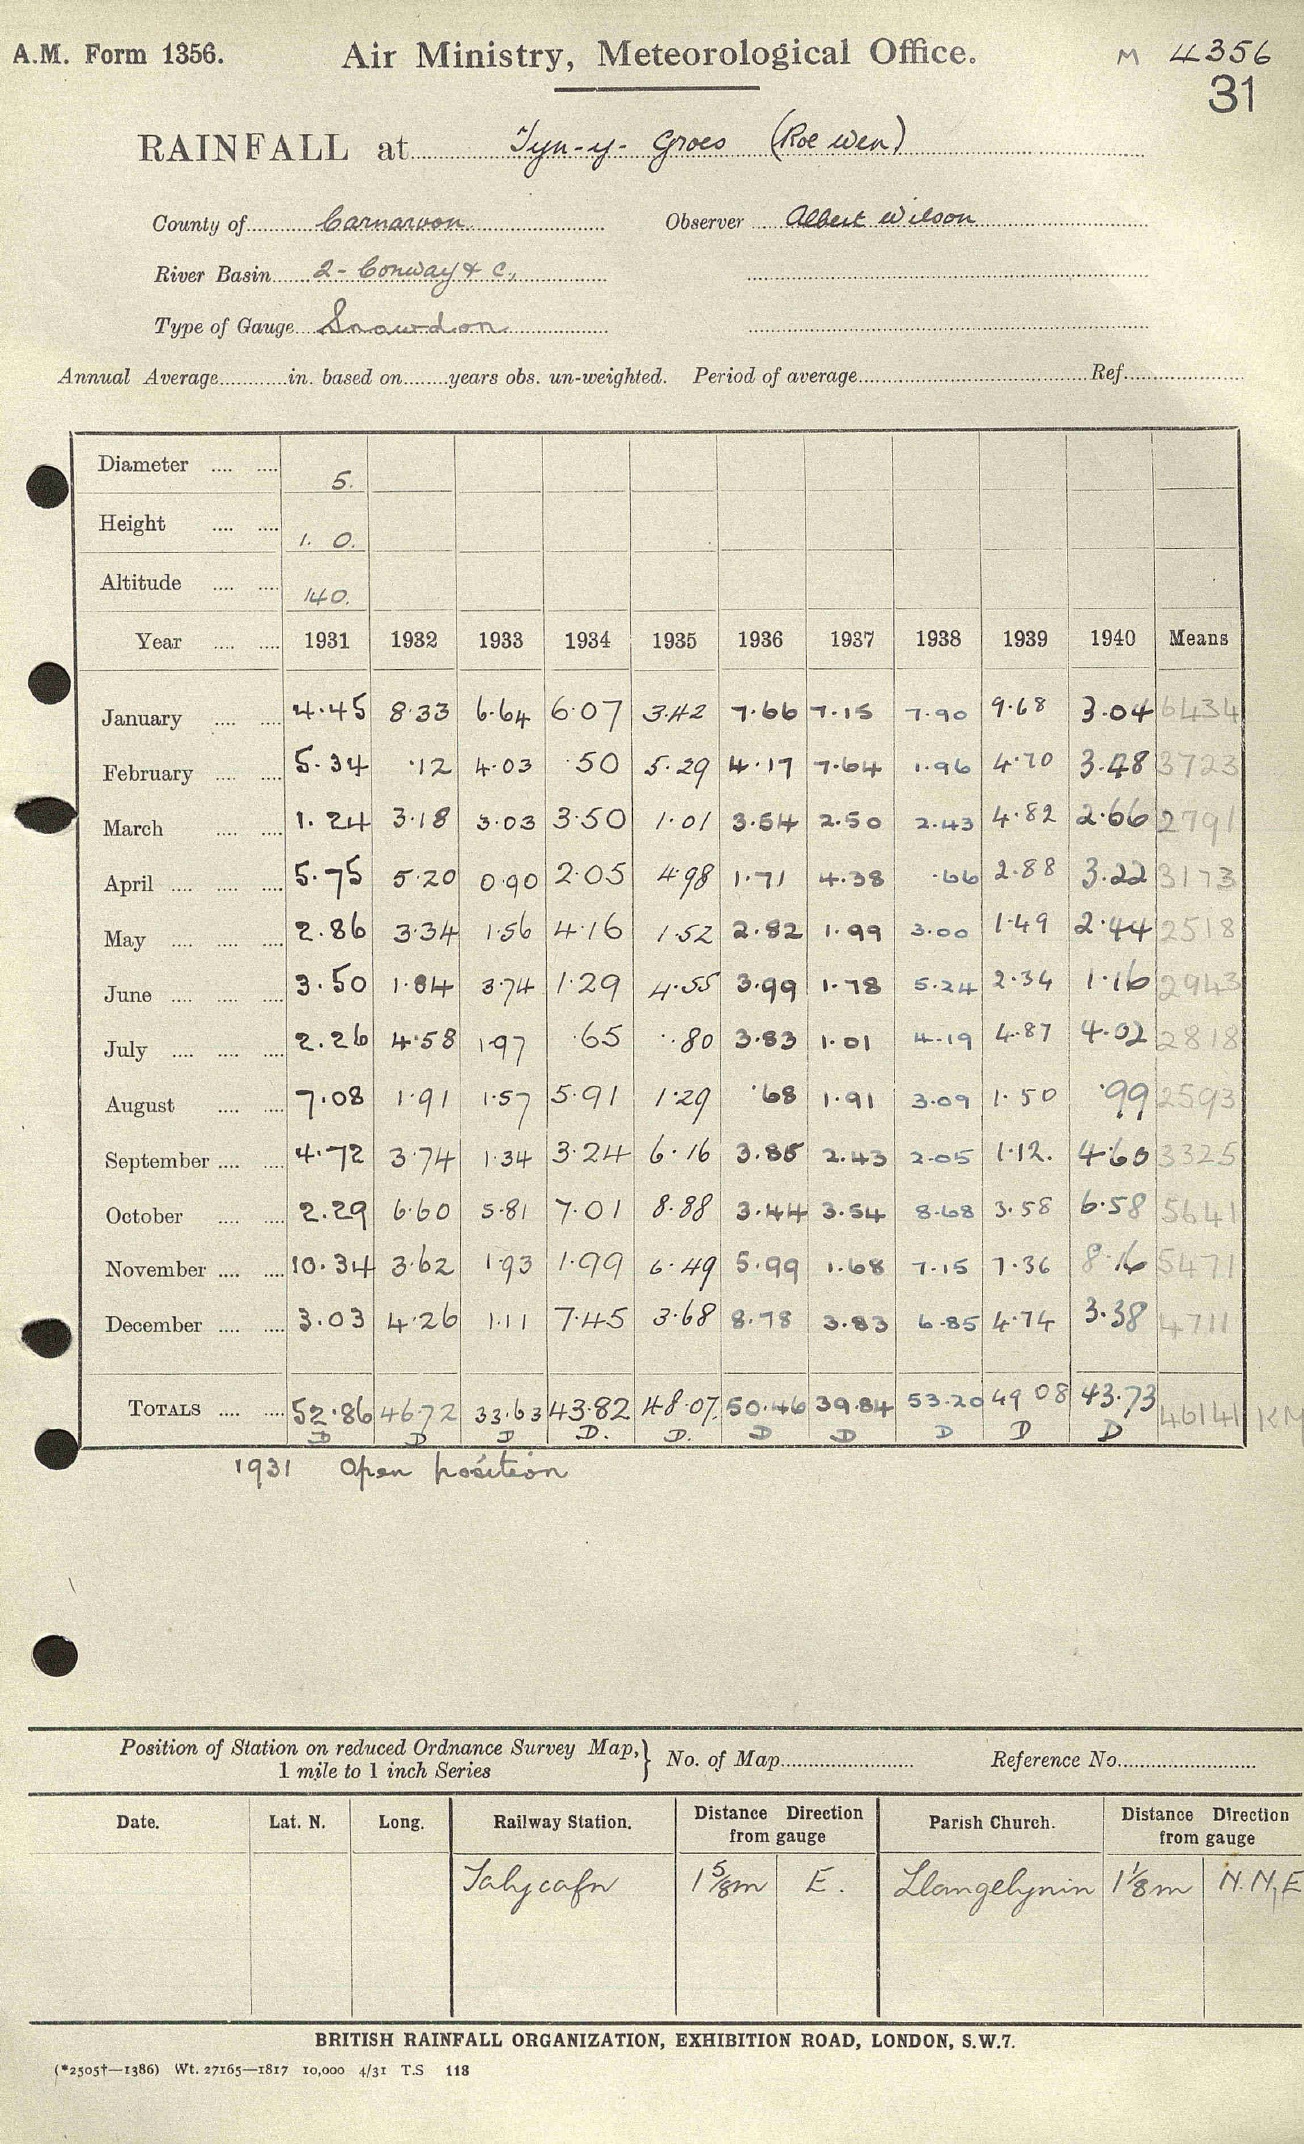 A.M. Form 1356. Air Ministry, Meteorological Office. M 4356
31
RAINFALL at Tyn-y-Groes (Roe Wen)
County of Carnarvon Observer Albert Wilson
River Basin 2 - Conway & c,
Type of Gauge Snowdon
Annual Average in. based on years obs. un-weighted. Period of average Ref.
Diameter 5.
Height 1. 0.
Altitude 140.
Year 1931 1932 1933 1934 1935 1936 1937 1938 1939 1940 Means
January 4.45 8.33 6.64 6.07 3.42 7.66 7.15 7.90 9.68 3.04 6434
February 5.34 .12 4.03 .50 5.29 4.17 7.64 1.96 4.70 3.48 3723
March 1.24 3.18 3.03 3.50 1.01 3.54 2.50 2.43 4.82 2.66 2791
April 5.75 5.20 0.90 2.05 4.98 1.71 4.38 .66 2.88 3.22 3173
May 2.86 3.34 1.56 4.16 1.52 2.82 1.99 3.00 1.49 2.44 2518
June 3.50 1.84 3.74 1.29 4.55 3.99 1.78 5.24 2.34 1.16 2943
July 2.26 4.58 1.97 .65 .80 3.83 1.01 4.19 4.87 4.02 2818
August 7.08 1.91 1.57 5.91 1.29 .68 1.91 3.09 1.50 .99 2593
September 4.72 3.74 1.34 3.24 6.16 3.85 2.43 2.05 1.12. 4.60 3325
October 2.29 6.60 5.81 7.01 8.88 3.44 3.54 8.68 3.58 6.58 5641
November 10.34 3.62 1.93 1.99 6.49 5.99 1.68 7.15 7.36 8.16 5471
December 3.03 4.26 1.11 7.45 3.68 8.78 3.83 6.85 4.74 3.38 4711
TOTALS 52.86 46.72 33.63 43.82 48.07. 50.46 39.84 53.20 49 08 43.73 46141 KM
D D D D. D. D D D D D
1931 Open position
Position of Station on reduced Ordnance Survey Map, 1 mile to 1 inch Series } No. of Map Reference No.
Date. Lat. N. Long. Railway Station. Distance Direction from gauge Parish Church. Distance Direction from gauge
Talycafn 1 5/8m E. Llangelynin 1 1/8m N.N,E
BRITISH RAINFALL ORGANIZATION, EXHIBITION ROAD, LONDON, S.W.7.
(*2505†—1386) Wt. 27165—1817 10,000 4/31 T.S 118